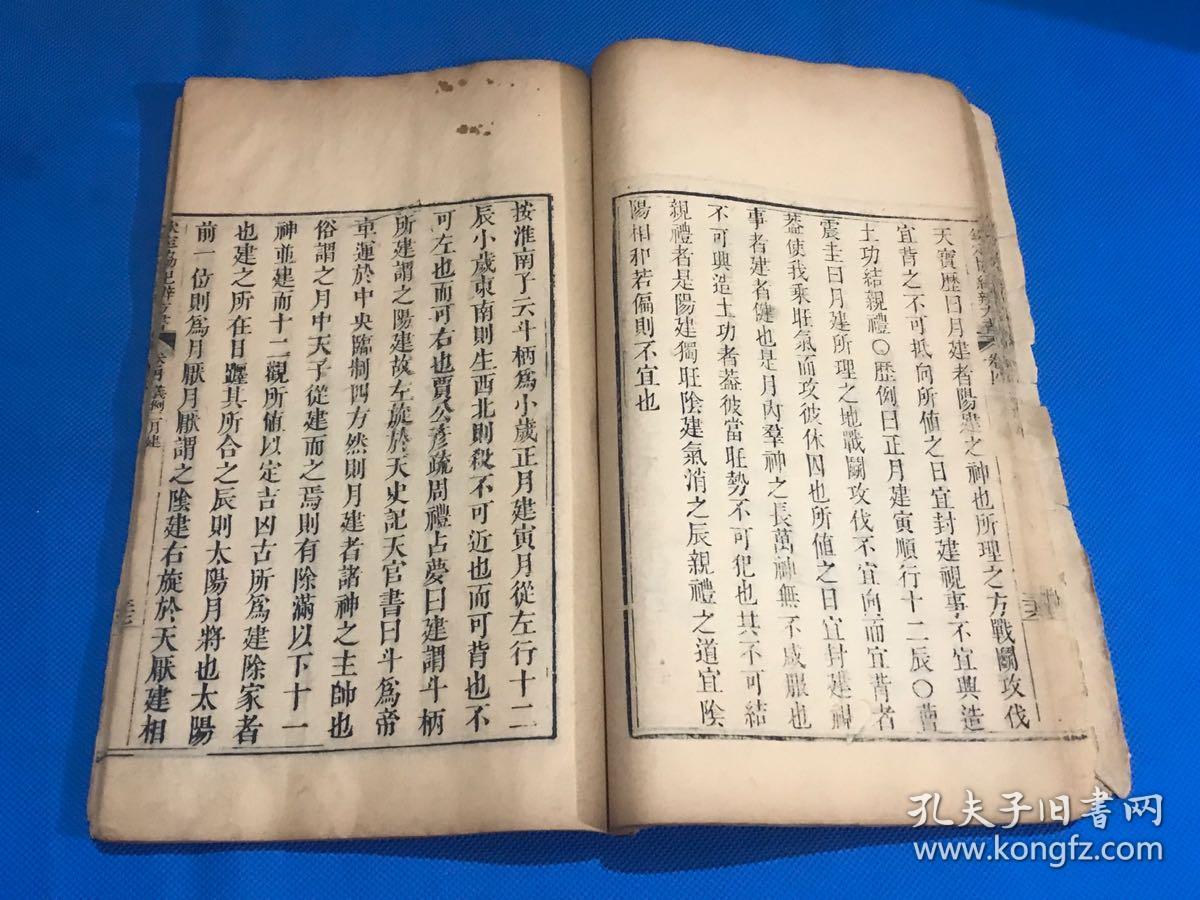 天寶歷曰月建者陽建之神也所理之方戰鬬攻伐
宜背之不可抵向所値之日宜封建視事不宜興造
土功結親禮○歷例曰正月建寅順行十二辰○曹
震圭曰月建所理之地戰鬬攻伐不宜向而宜背者
葢使我乘旺氣而攻彼休囚也所値之日宜封建視
事者建者健也是月內羣神之長萬神無不咸服也
不可興造土功者葢彼當旺勢不可犯也其不可結
親禮者是陽建獨旺陰建氣消之辰親禮之道宜陰
陽相和若偏則不宜也
按淮南子云斗柄爲小歲正月建寅月從左行十二
辰小歲東南則生西北則殺不可近也而可背也不
可左也而可右也賈公彥疏周禮占夢曰建謂斗柄
所建謂之陽建故左旋於天史記天官書曰斗爲帝
車運於中央臨制四方然則月建者諸神之主帥也
俗謂之月中天子從建而之焉則有除滿以下十一
神並建而十二觀所値以定吉凶古所爲建除家者
也建之所在日躔其所合之辰則太陽月將也太陽
前一位則爲月厭月厭謂之陰建右旋於天厭建相
欽定協紀辨方書 卷四 義例二 月建
孔夫子旧书网
www.kongfz.com